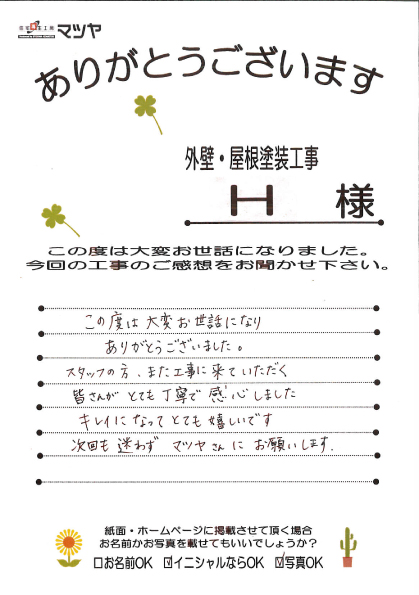 マツヤ
ありがとうございます
外壁・屋根塗装工事
H 様
この度は大変お世話になりました。
今回の工事のご感想をお聞かせ下さい。
この度は大変お世話になり
ありがとうございました。
スタッフの方、また工事に来ていただく
皆さんが とても丁寧で 感心しました
キレイになって とても 嬉しいです
次回も 迷わず マツヤさんに お願いします.
紙面・ホームページに掲載させて頂く場合
お名前かお写真を載せてもいいでしょうか？
□お名前OK ☑イニシャルならOK ☑写真OK